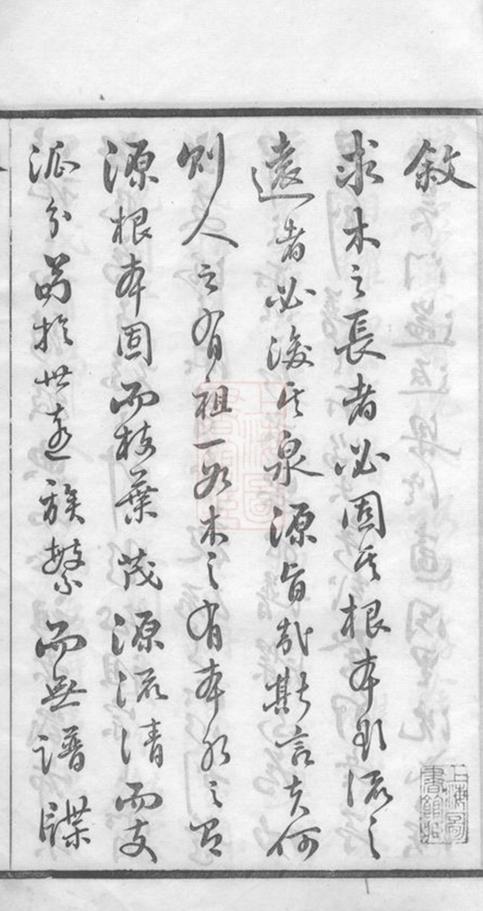 敘
求木之長者必固其根本欲流之
遠者必浚其泉源旨哉斯言夫何
則人之有祖一如木之有本水之有
源根本固而枝葉茂源流清而支
派分苟於世遠族繁而無譜牒
上海圖書館藏